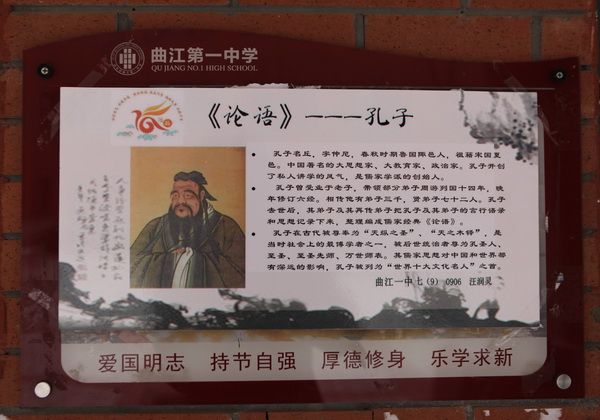 曲江第一中学
QU JIANG NO.1 HIGH SCHOOL
《论语》———孔子
• 孔子名丘，字仲尼，春秋时期鲁国陬邑人，祖籍宋国夏
邑。中国著名的大思想家、大教育家、政治家。孔子开创
了私人讲学的风气，是儒家学派的创始人。
• 孔子曾受业于老子，带领部分弟子周游列国十四年，晚
年修订六经。相传他有弟子三千，贤弟子七十二人。孔子
去世后，其弟子及其再传弟子把孔子及其弟子的言行语录
和思想记录下来，整理编成儒家经典《论语》。
• 孔子在古代被尊奉为“天纵之圣”、“天之木铎”，是
当时社会上的最博学者之一，被后世统治者尊为孔圣人、
至圣、至圣先师、万世师表。其儒家思想对中国和世界都
有深远的影响，孔子被列为“世界十大文化名人”之首。
曲江一中七（9） 0906 汪润灵
爱国明志 持节自强 厚德修身 乐学求新